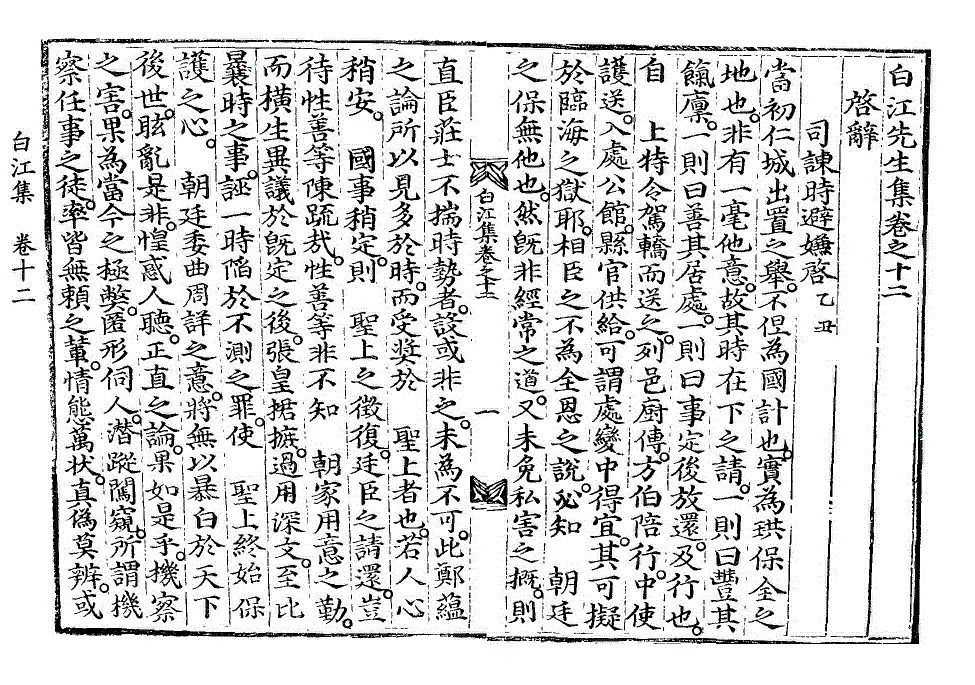 白江先生集卷之十二
啓辭
司諫時避嫌啓 乙丑
當初仁城出置之擧。不但爲國計也。實爲珙保全之
地也。非有一毫他意。故其時在下之請。一則曰豐其
餼廩。一則曰善其居處。一則曰事定後放還。及行也。
自 上特令駕轎而送之。列邑廚傳。方伯陪行。中使
護送。入處公館。縣官供給。可謂處變中得宜。其可擬
於臨海之獄耶。相臣之不爲全恩之說。必知 朝廷
之保無他也。然旣非經常之道。又未免私害之概。則
白江集卷之十二 一
直臣莊士不揣時勢者。設或非之。未爲不可。此鄭蘊
之論所以見多於時。而受奬於 聖上者也。若人心
稍安。 國事稍定。則 聖上之徵復。廷臣之請還。豈
待性善等陳疏哉。性善等非不知 朝家用意之勤。
而橫生異議於旣定之後。張皇掂摭。過用深文。至比
曩時之事。誣一時陷於不測之罪。使 聖上終始保
護之心。 朝廷委曲周詳之意。將無以暴白於天下
後世。眩亂是非。惶惑人聽。正直之論。果如是乎。機察
之害。果爲當今之極弊。匿形伺人。潛蹤闖窺。所謂機
察任事之徒。率皆無賴之輩。情態萬狀。眞僞莫辨。或
白江集 卷十二